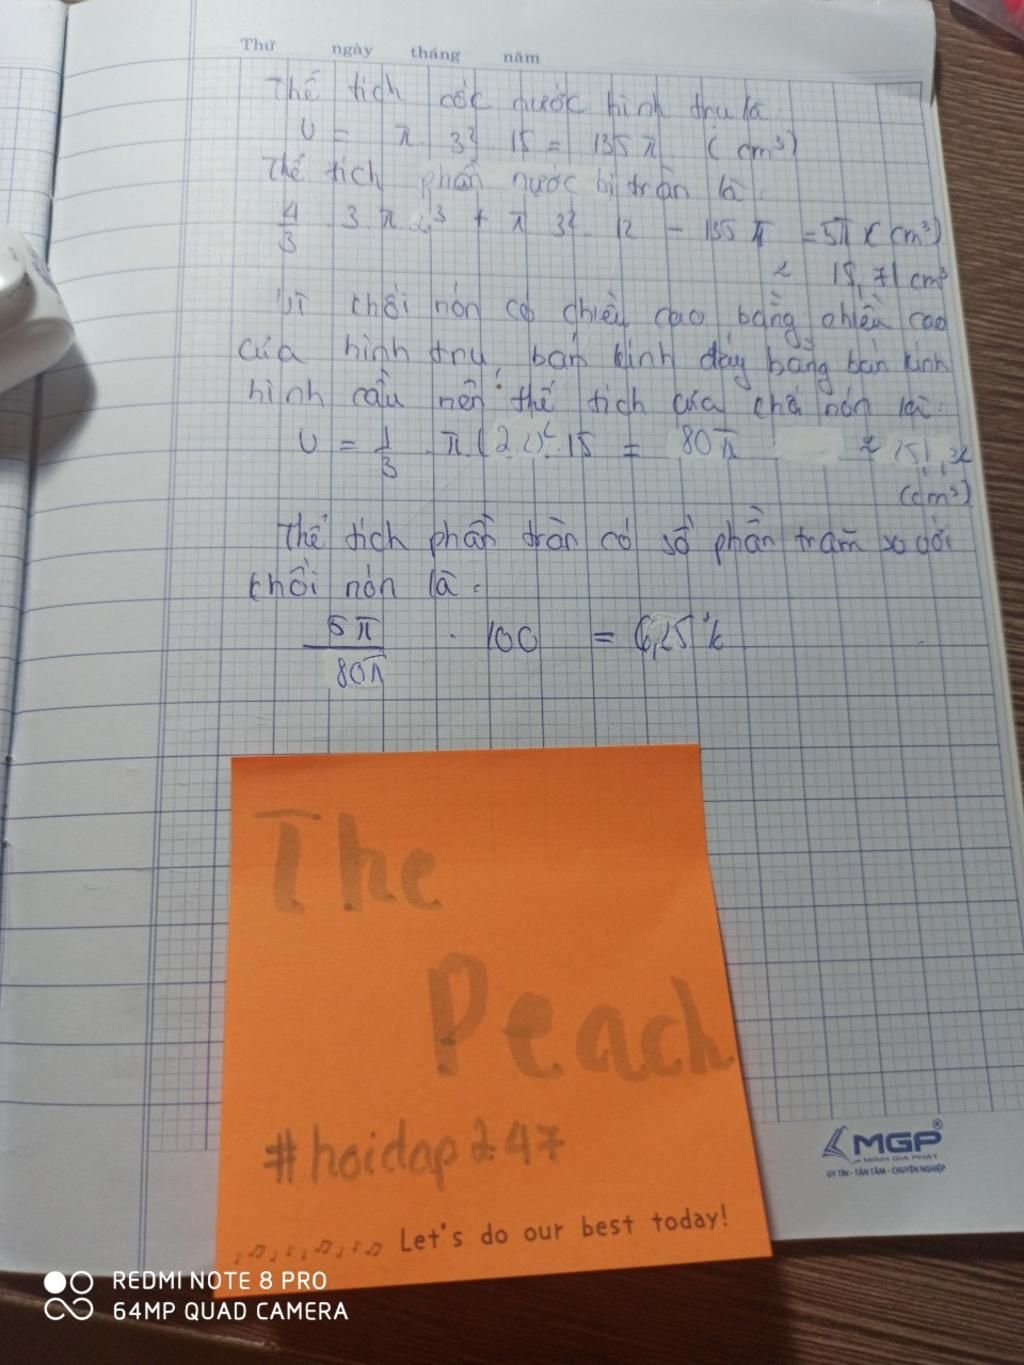 Thứ ngày tháng năm
Thể tích cốc nước hình trụ là
V = π. 3². 15 = 135π (cm³)
Thể tích phần nước bị tràn là:
4/3 . 3. π. 2³ + π 3². 12 - 135π = 5π (cm³)
≈ 15,71 cm³
Vì khối nón có chiều cao bằng chiều cao
của hình trụ, bán kính đáy bằng bán kính
hình cầu nên thể tích của khối nón là:
V = 1/3 . π (2.2)². 15 = 80π ≈ 251,32
(cm³)
Thể tích phần tràn có số phần trăm so với
khối nón là:
5π/80π . 100 = 6,25%
The
Peach
#hoidap247
Let's do our best today!
MGP®
MINH GIA PHÁT
UY TÍN - TẬN TÂM - CHUYÊN NGHIỆP
REDMI NOTE 8 PRO
64MP QUAD CAMERA